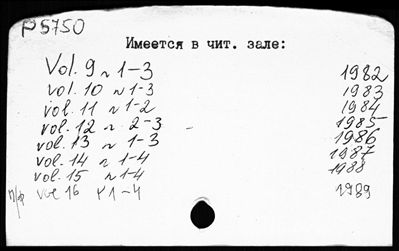 P5750
Имеется в чит. зале:
Vol. 9 n 1-3 1982
vol. 10 n 1-3 1983
vol. 11 n 1-2 1984
vol. 12 n 2-3 1985
vol. 13 n 1-3 1986
vol. 14 n 1-4 1987
vol. 15 n 1-4 1988
vol 16 1-4 1989